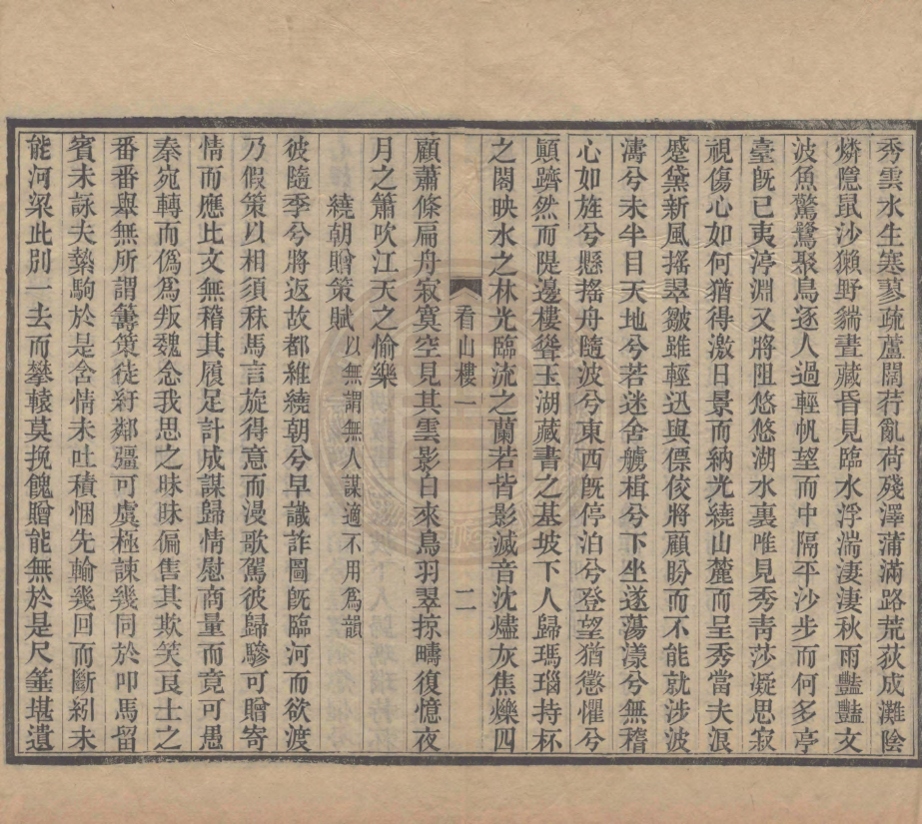 秀雲水生寒蓼疏蘆闊荇亂荷殘澤蒲滿路荒荻成灘陰
燐隱鼠沙獺野猯晝藏昏見臨水浮湍淒淒秋雨豔豔文
波魚驚鷺聚鳥逐人過輕帆望而中隔平沙步而何多亭
臺旣已夷渟淵又將阻悠悠湖水裏唯見秀靑莎凝思寂
視傷心如何猶得激日景而納光繞山麓而呈秀當夫浪
蹙黛新風搖翠皺雖輕迅與僄佼將顧盼而不能就涉波
濤兮未半目天地兮若迷舍艣楫兮下坐遂蕩漾兮無稽
心如旌兮懸搖舟隨波兮東西旣停泊兮登望猶懲懼兮
顚躋然而隄邊樓聳玉湖藏書之基坡下人歸瑪瑙持杯
之閣映水之林光臨流之蘭若皆影滅音沈燼灰焦爍四
看山樓一 二
顧蕭條扁舟寂寞空見其雲影白來鳥羽翠掠疇復憶夜
月之簫吹江天之愉樂
繞朝贈策賦 以無謂無人謀適不用爲韻
彼隨季兮將返故都維繞朝兮早識詐圖旣臨河而欲渡
乃假策以相須秣馬言旋得意而漫歌駕彼歸驂可贈寄
情而應比文無稽其履足計成謀歸情慰商量而竟可愚
秦宛轉而僞爲叛魏念我思之昧昧偏售其欺笑艮士之
番番舉無所謂籌策徒紆鄰彊可虞極諫幾同於叩馬留
賓未詠夫縶駒於是含情未吐積悃先輸幾回而斷紖未
能河梁此別一去而攀轅莫挽餽贈能無於是尺箠堪遺